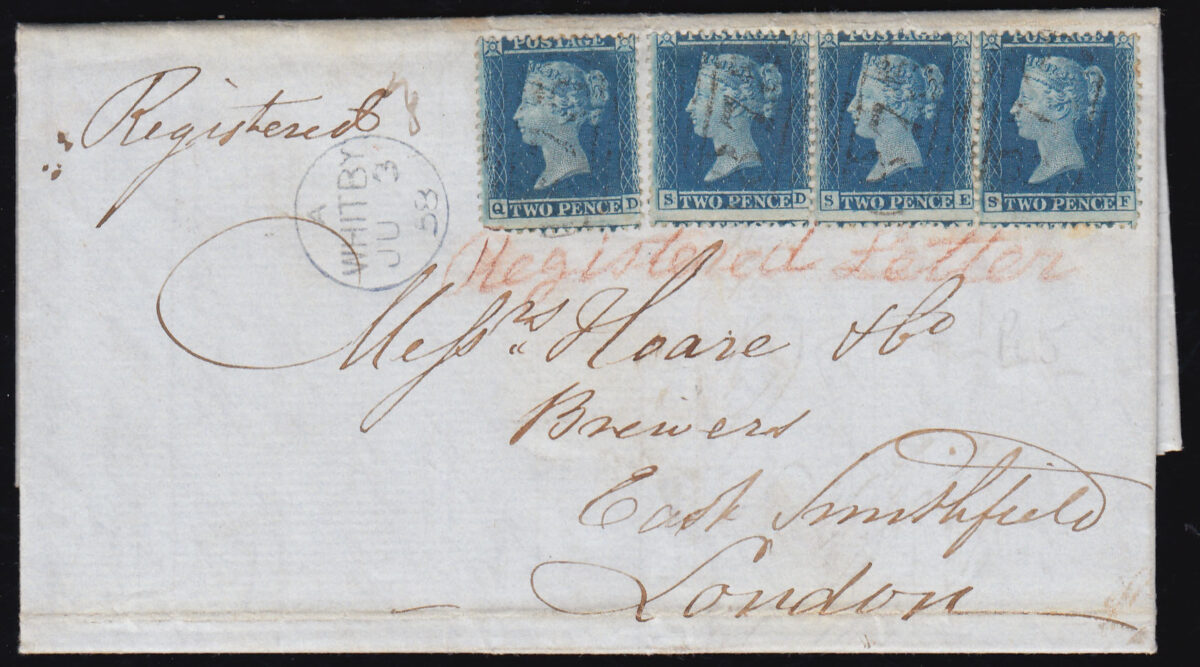 POSTAGE POSTAGE POSTAGE POSTAGE
Q TWO PENCE D S TWO PENCE D S TWO PENCE E S TWO PENCE F
Registered
A
WHITBY
JU 3
58
Registered Letter
Messrs Hoare & Co
Brewers
East Smithfield
London